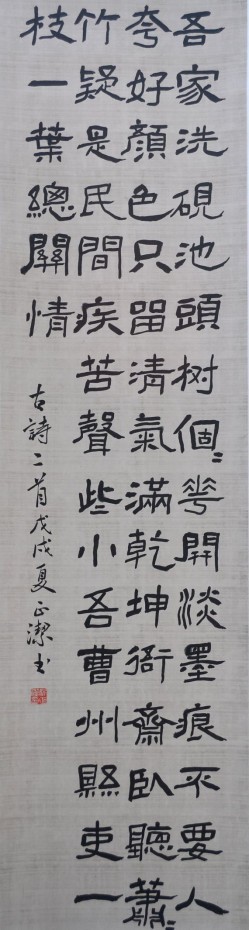 吾家洗硯池頭树個〻華開淡墨痕不要人
夸好顏色只留清氣滿乾坤衙齋臥聽蕭〻
竹疑是民間疾苦聲些小吾曹州縣吏一
枝一葉總關情
古詩二首戊戌夏正潔书